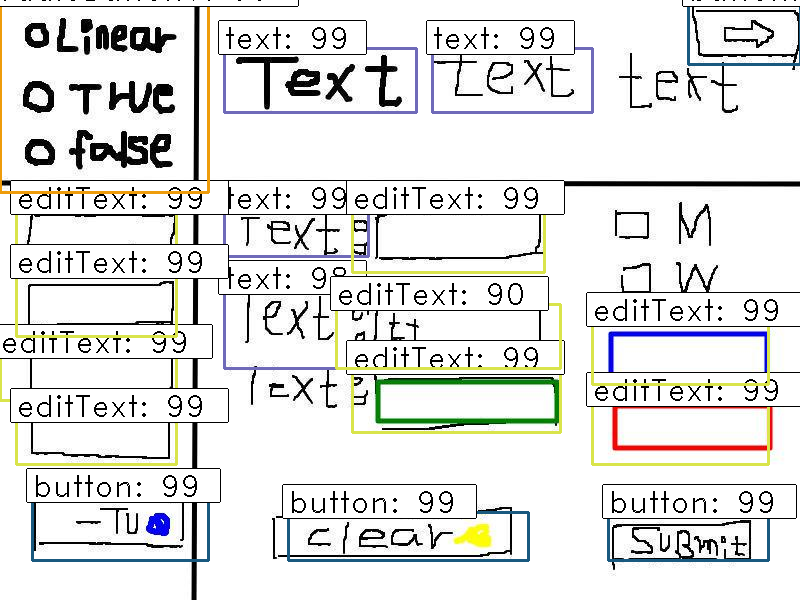 Linear
TRUE
false
text: 99
Text
text: 99
text
text
editText: 99
text: 99
Text:
editText: 99
M
editText: 99
text: 98
Text
editText: 90
W
editText: 99
editText: 99
Text:
editText: 99
editText: 99
editText: 99
button: 99
-TU
button: 99
clear
button: 99
SUBmit